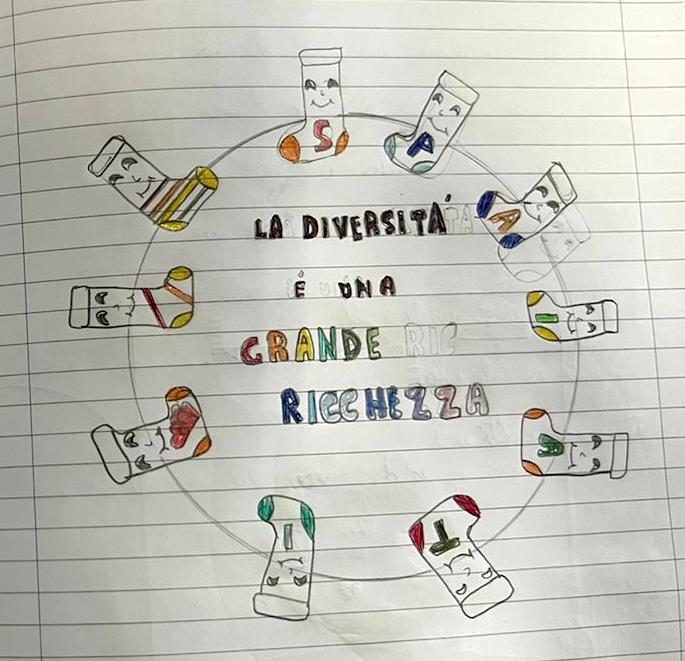 S P A I A T I
LA DIVERSITÁ
É UNA
GRANDE
RICCHEZZA